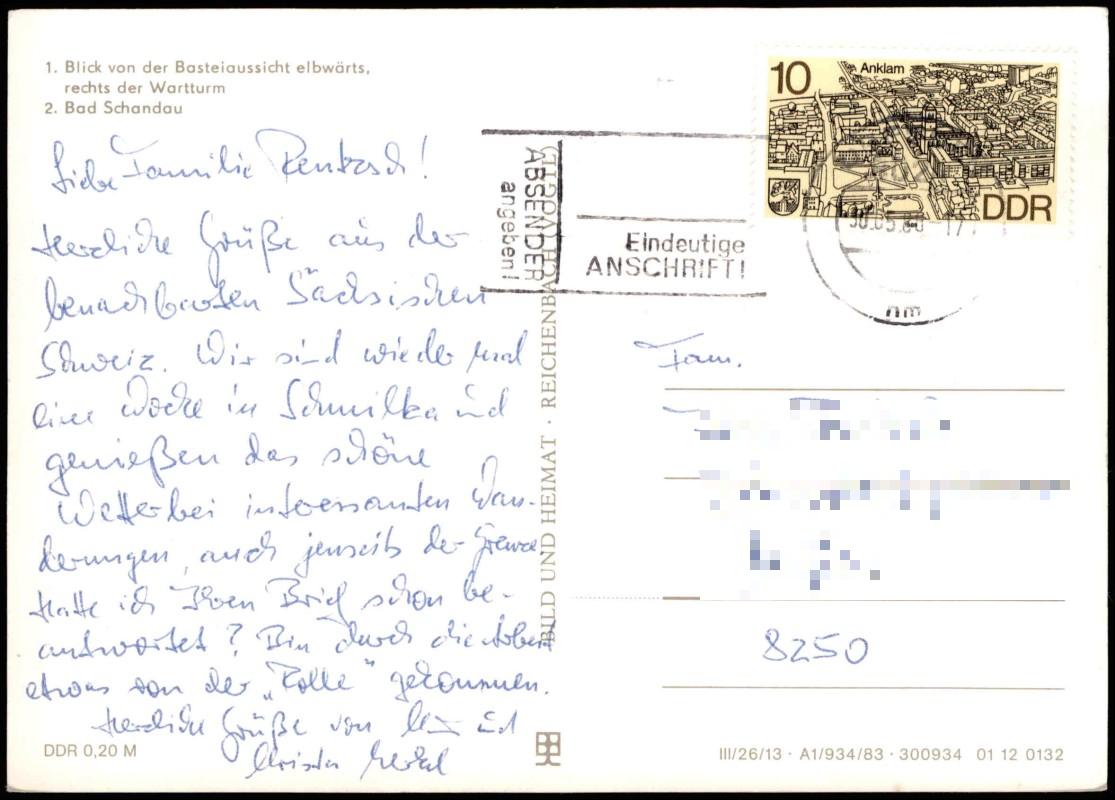 1. Blick von der Basteiaussicht elbwärts,
rechts der Wartturm
2. Bad Schandau
Liebe Familie
Herzliche Grüße aus der
benachbarten Sächsischen
Schweiz. Wir sind wieder mal
eine Woche in Schmilka und
genießen das schöne
Wetter bei interessanten Wan-
derungen, auch jenseits der Grenze
Hatte ich Ihren Brief schon be-
antwortet? Bin durch die Arbeit
etwas von der „Rolle" gekommen.
Herzliche Grüße von und
Christa
DDR 0,20 M
BILD UND HEIMAT · REICHENBACH (VOGTL)
ABSENDER
angeben!
Eindeutige
ANSCHRIFT!
10
Anklam
DDR
nm
Fam.
8250
III/26/13 · A1/934/83 · 300934 01 12 0132